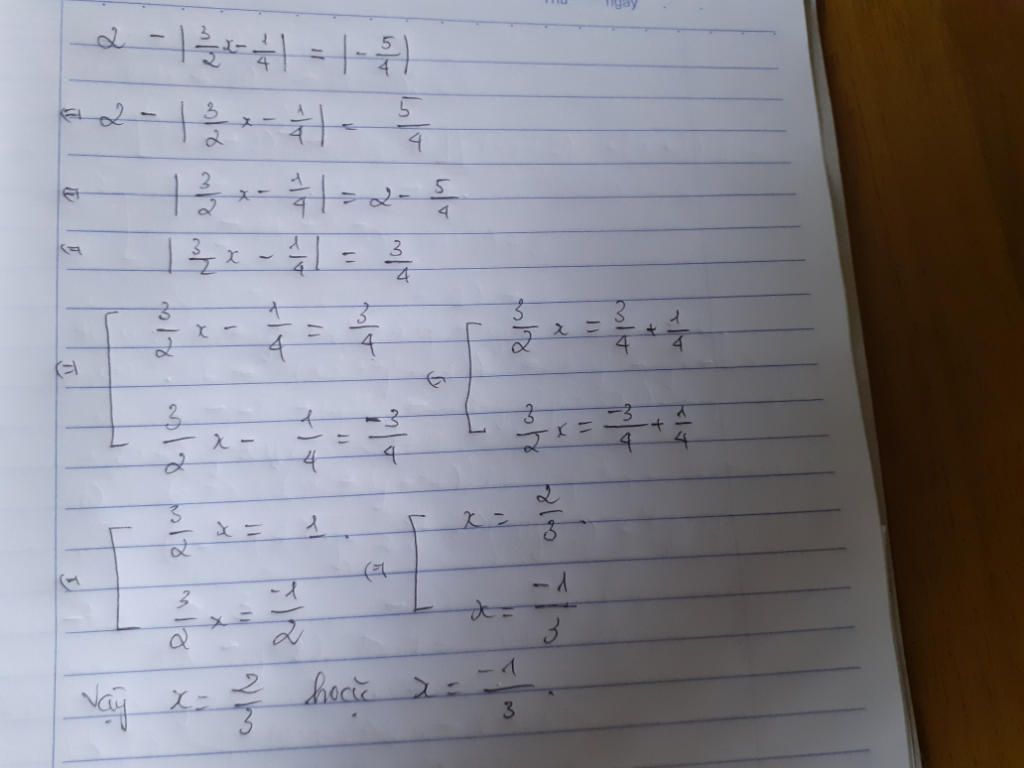 Thứ ngày
2 - |3/2 x - 1/4| = |- 5/4|
⇔ 2 - |3/2 x - 1/4| = 5/4
⇔ |3/2 x - 1/4| = 2 - 5/4
⇔ |3/2 x - 1/4| = 3/4
⇔ [ 3/2 x - 1/4 = 3/4 ⇔ [ 3/2 x = 3/4 + 1/4
3/2 x - 1/4 = -3/4 3/2 x = -3/4 + 1/4
⇔ [ 3/2 x = 1. ⇔ [ x = 2/3.
3/2 x = -1/2 x = -1/3
Vậy x = 2/3 hoặc x = -1/3.